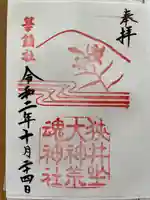 奉拝
狭井坐
大神荒
魂神社
華鎮社
令和二年十月廿四日